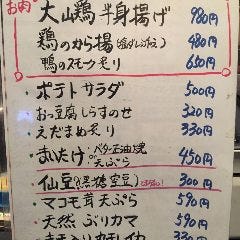 お肉
大山鶏半身揚げ 980円
鶏のから揚 480円
鴨のスモーク炙り 650円
・ポテトサラダ 500円
・お豆腐しらすのせ 320円
・えだまめ炙り 330円
・まいたけ バター石油焼 or 天ぷら 450円
・仙豆(黒糖空豆) 300円
・マコモ茸天ぷら 590円
・天然ぶりカマ 590円